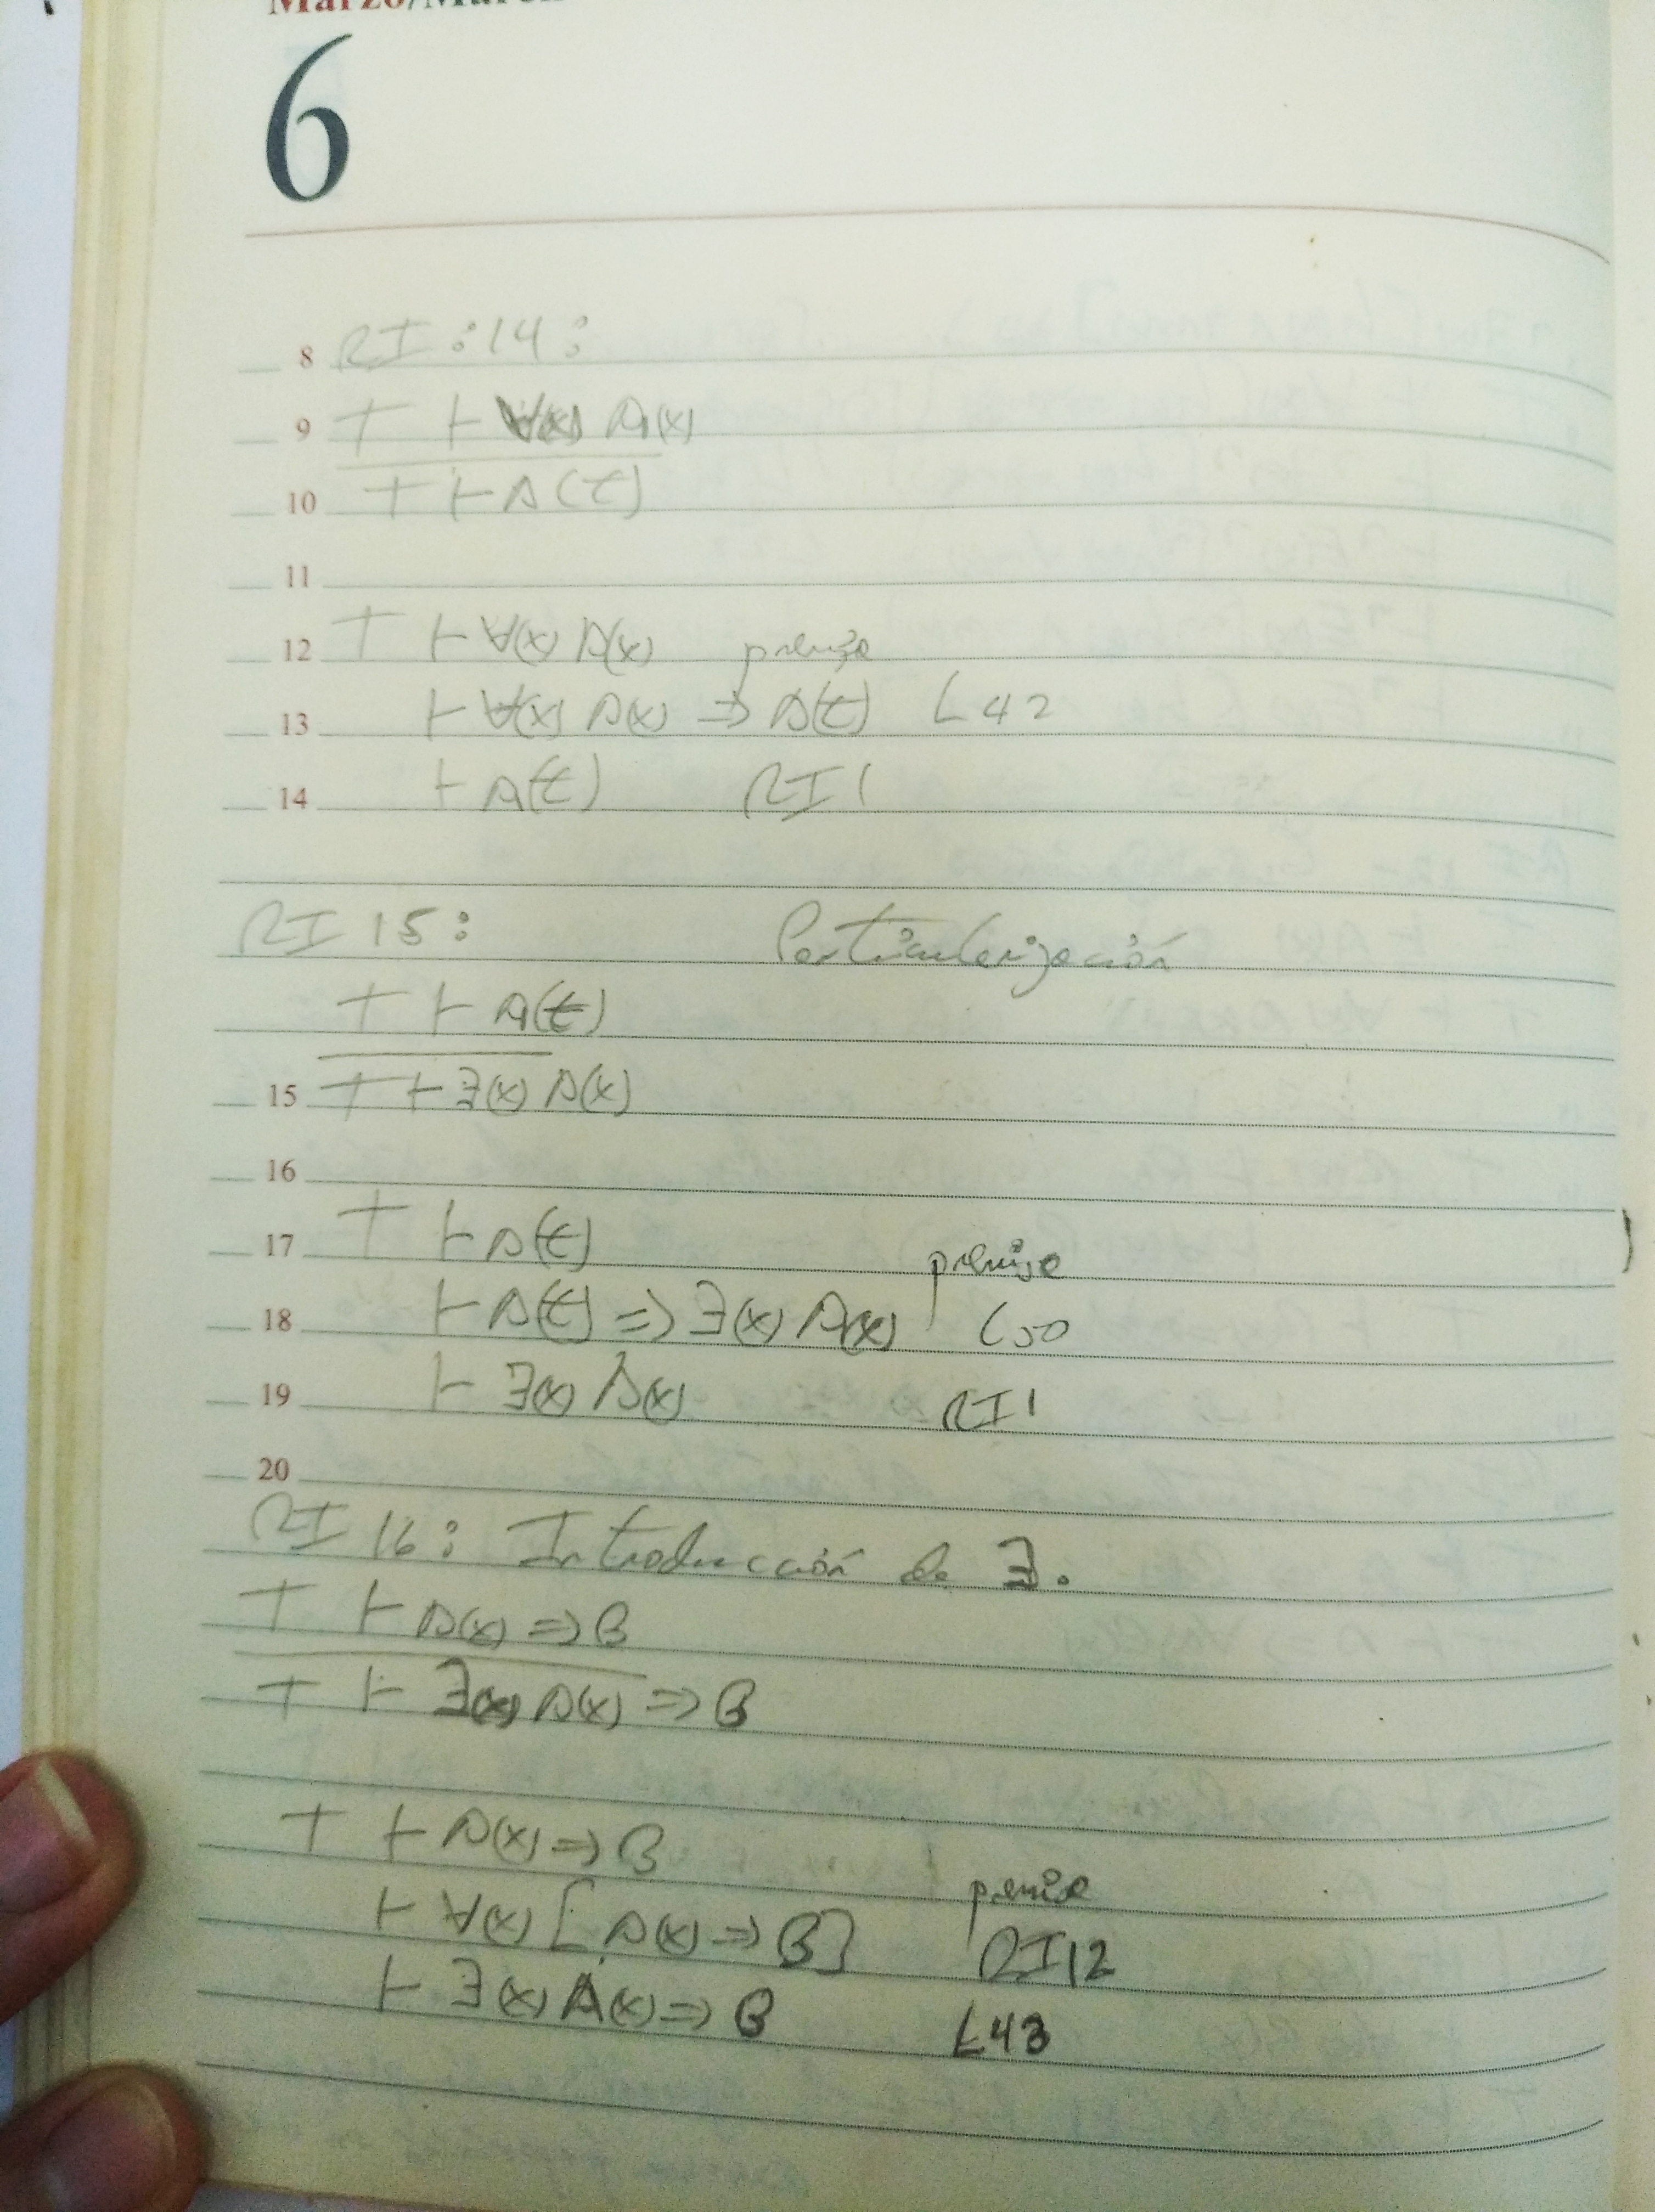 Marzo/March
6
8 RI:14:
9 T ⊢ ∀(x) A(x)
10 T ⊢ A(t)
11
12 T ⊢ ∀(x) A(x) premisa
13 ⊢ ∀(x) A(x) => A(t) L42
14 ⊢ A(t) RI1
RI 15: Particularización
T ⊢ A(t)
15 T ⊢ ∃(x) A(x)
16
17 T ⊢ A(t) premisa
18 ⊢ A(t) => ∃(x) A(x) L50
19 ⊢ ∃(x) A(x) RI1
20
RI 16: Introducción de ∃.
T ⊢ A(x) => B
T ⊢ ∃(x) A(x) => B
T ⊢ A(x) => B premisa
⊢ ∀(x) [A(x) => B] RI12
⊢ ∃(x) A(x) => B L43